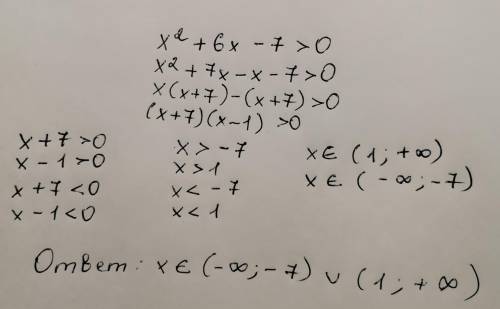 x² + 6x - 7 > 0
x² + 7x - x - 7 > 0
x(x+7) - (x+7) > 0
(x+7)(x-1) > 0
x + 7 > 0
x - 1 > 0
x + 7 < 0
x - 1 < 0
x > -7
x > 1
x < -7
x < 1
x ∈ (1; +∞)
x ∈ (-∞; -7)
Ответ: x ∈ (-∞; -7) ∪ (1; +∞)